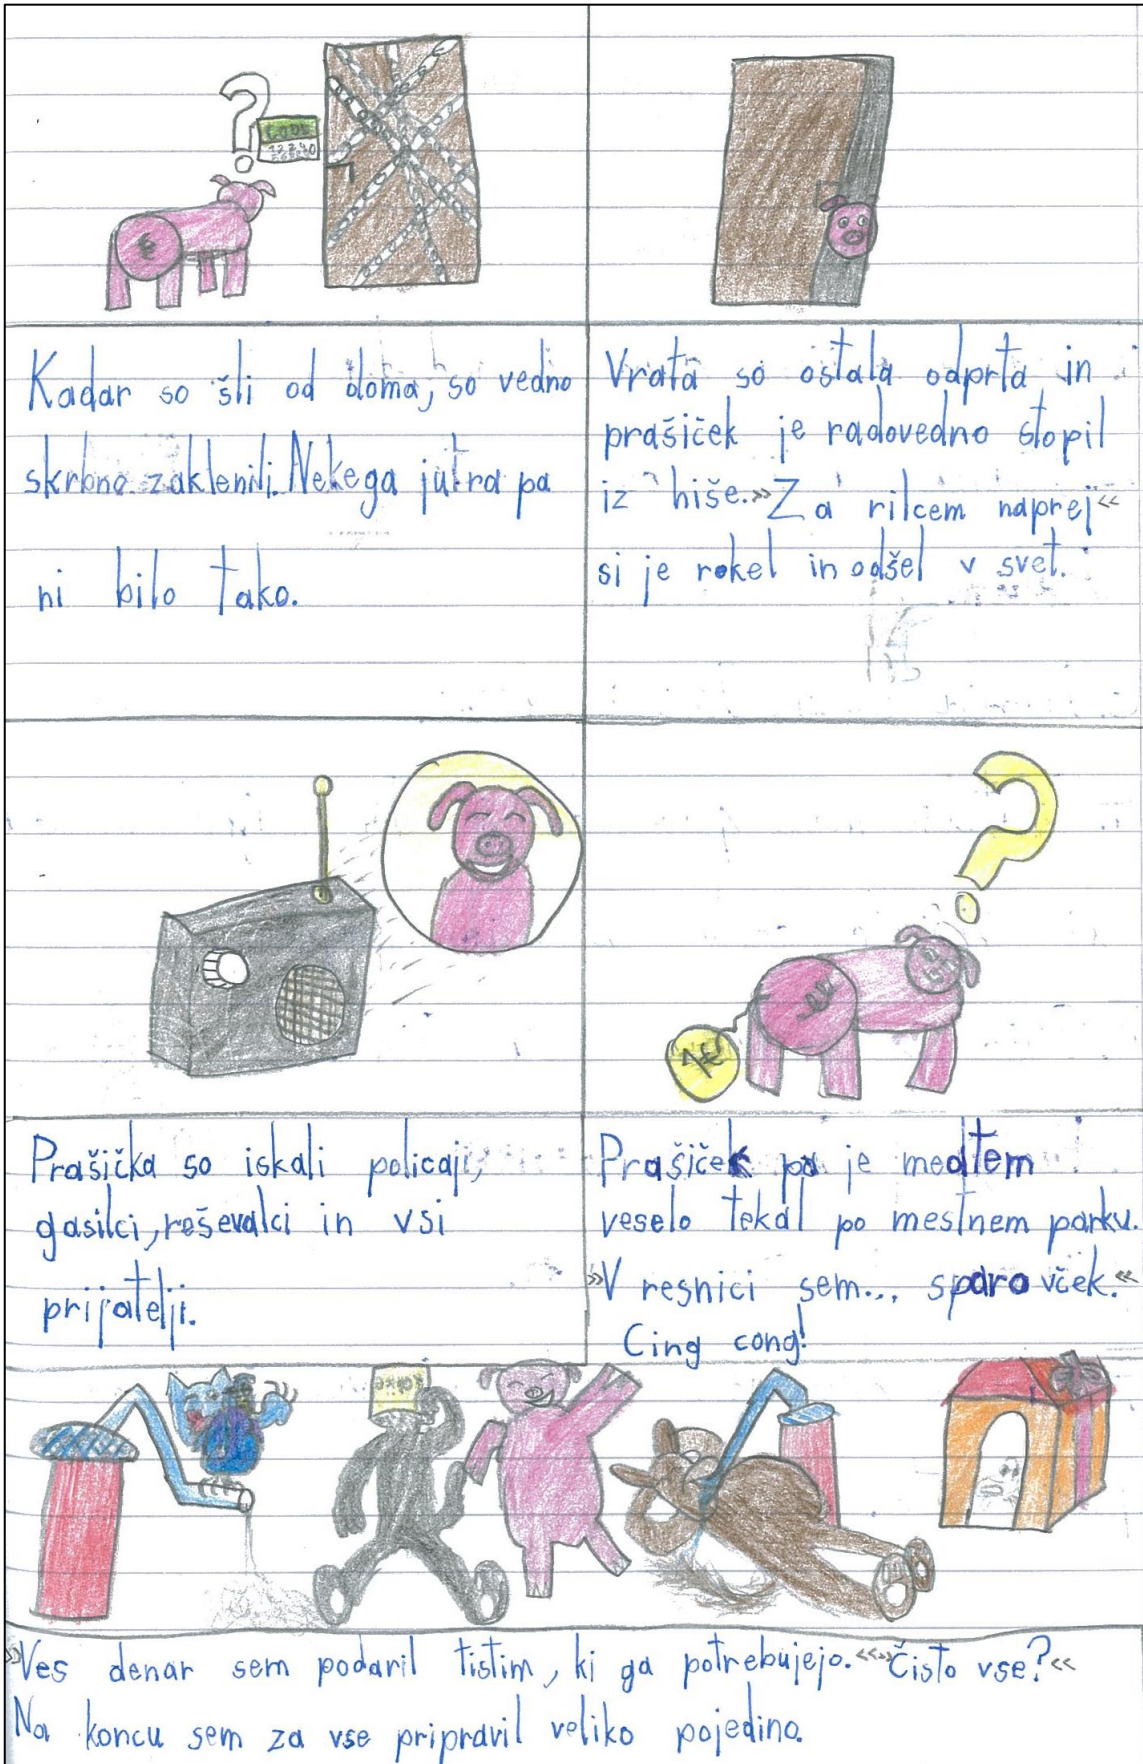 CODE
€
Kadar so šli od doma, so vedno
skrbno zaklenili. Nekega jutra pa
ni bilo tako.
Vrata so ostala odprta in
prašiček je radovedno stopil
iz hiše. »Za rilcem naprej«
si je rekel in odšel v svet.
1€
Prašička so iskali policaji,
gasilci, reševalci in vsi
prijatelji.
Prašiček pa je medtem
veselo tekal po mestnem parku.
»V resnici sem... sparovček.«
Cing cong!
»Ves denar sem podaril tistim, ki ga potrebujejo.« »Čisto vse?«
Na koncu sem za vse pripravil veliko pojedino.